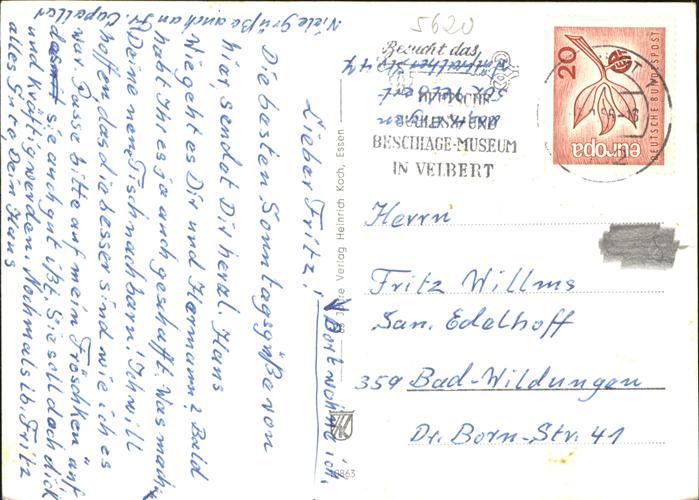 Lieber Fritz!
Die besten Sonntagsgrüße von
hier sendet Dir herzl. Hans
Wie geht es Dir und Hermann 2 Bald
habt Ihr es ja auch geschafft. Was mach
Deine neun Tischnachbarn! Ich will
hoffen, das die besser sind wie ich es
war. Passe bitte auf mein "Fröschken" auf
damit sie auch gut ißt. Sie soll doch dick
und kräftig werden. Nochmals lb. Fritz
alles Gute Dein Hans
Viele Grüße auch an Fr. Capellen
Dort wohne ich.
Verlag Heinrich Koch, Essen
5620
Besucht das
DEUTSCHE
SCHLOSS- UND
BESCHLÄGE-MUSEUM
IN VELBERT
20
europa
DEUTSCHE BUNDESPOST
Herrn
Fritz Willms
San. Edelhoff
359 Bad-Wildungen
Dr. Born-Str. 41